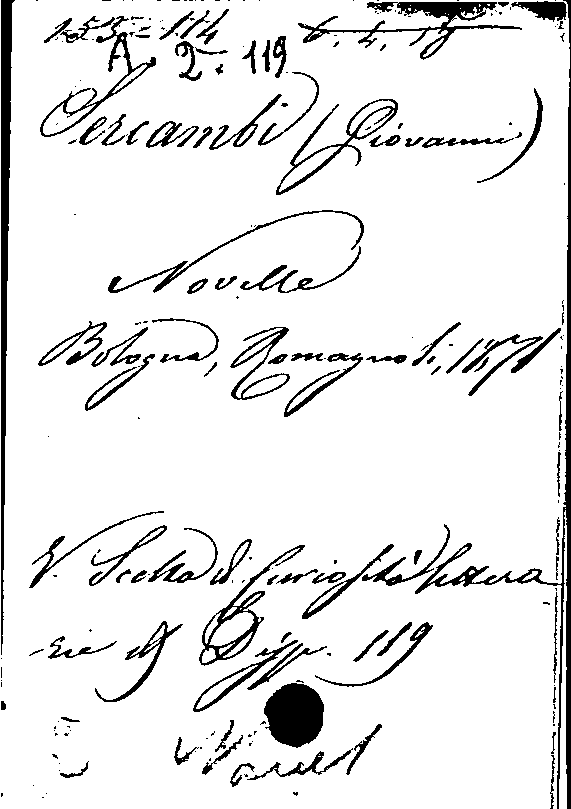 153 = 114 6. 4. 15
A. 2. 119
Sercambi (Giovanni)
Novelle
Bologna, Romagnoli, 1871
V. Scelta di Curiosità lettera
-rie Disp. 119